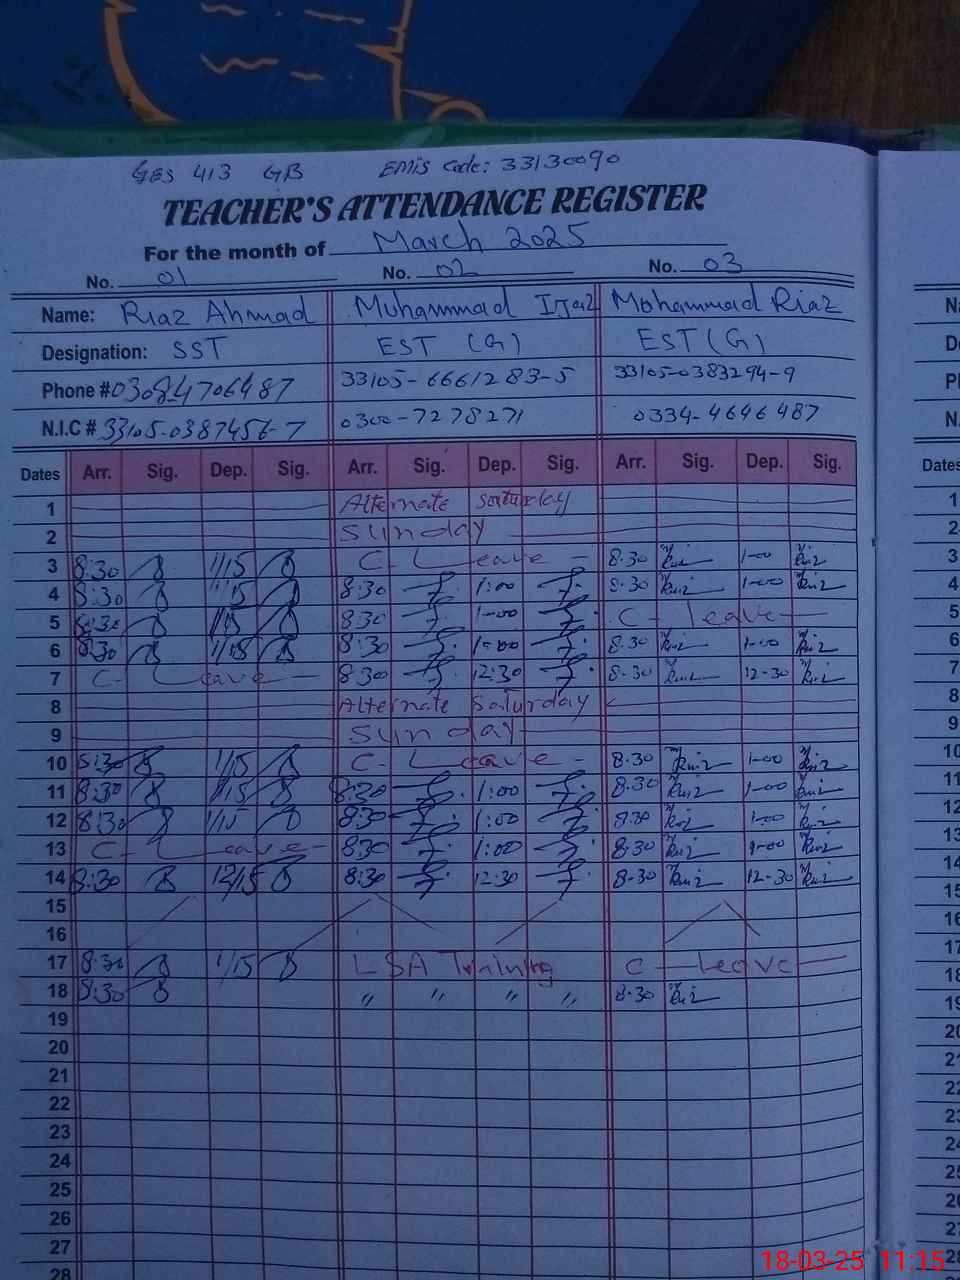 GES 413 GB EMIS Code: 33130090
TEACHER'S ATTENDANCE REGISTER
For the month of March 2025
No. 01 No. 02 No. 03
Name: Riaz Ahmad Muhammad Ijaz Mohammad Riaz
Designation: SST EST (G) EST (G)
Phone # 03084706487 33105-6661283-5 33105-0383294-9
N.I.C # 33105-0387456-7 0300-7278271 0334-4646487
Dates Arr. Sig. Dep. Sig. Arr. Sig. Dep. Sig. Arr. Sig. Dep. Sig.
1 Alternate Saturday
2 Sunday
3 8:30 1/15 C Leave 8.30 Riaz 1-00 Riaz
4 8:30 1/15 8:30 1:00 8.30 Riaz 1-00 Riaz
5 8:30 1/15 8:30 1-00 C leave
6 8:30 1/15 8:30 1:00 8.30 Riaz 1-00 Riaz
7 C- Leave 8:30 12:30 8-30 Riaz 12-30 Riaz
8 Alternate Saturday
9 Sunday
10 8:30 1/15 C- Leave 8.30 Riaz 1-00 Riaz
11 8:30 1/15 8:30 1:00 8.30 Riaz 1-00 Riaz
12 8:30 1/15 8:30 1:00 8.30 Riaz 1-00 Riaz
13 C- Leave 8:30 1:00 8.30 Riaz 1-00 Riaz
14 8:30 12/15 8:30 12:30 8-30 Riaz 12-30 Riaz
15
16
17 8:30 1/15 LSA Training C Leave
18 8:30 " " " " 8.30 Riaz
19
20
21
22
23
24
25
26
27
28
Dates
18-03-25 11:15